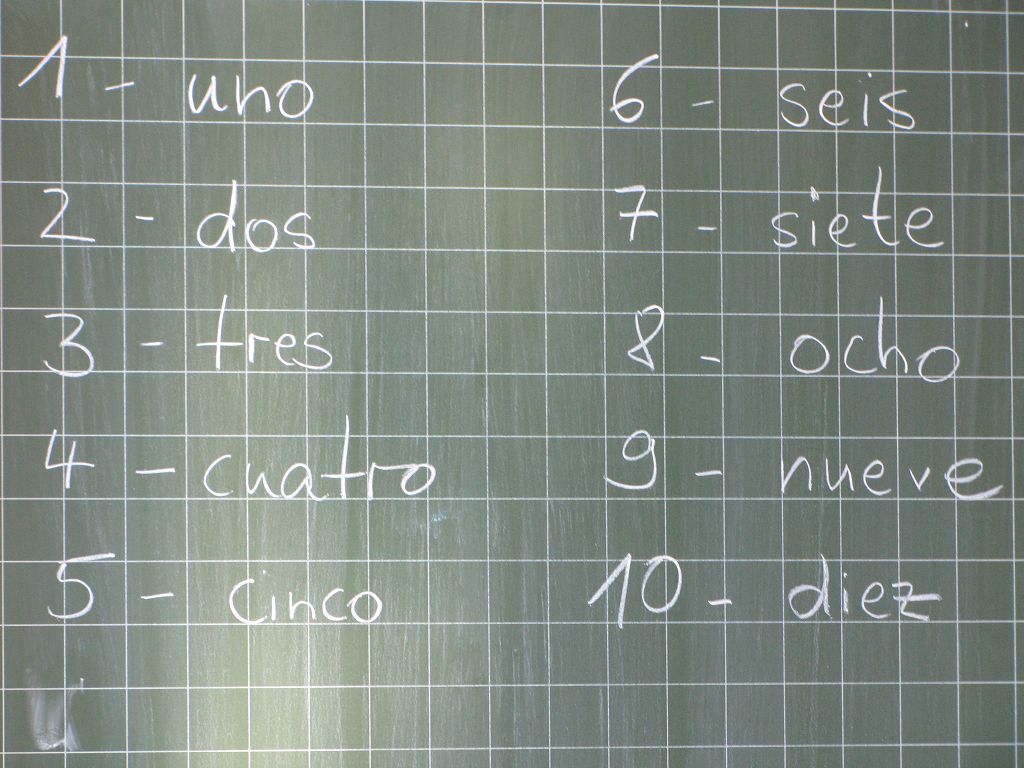 1 - uno
2 - dos
3 - tres
4 - cuatro
5 - cinco
6 - seis
7 - siete
8 - ocho
9 - nueve
10 - diez